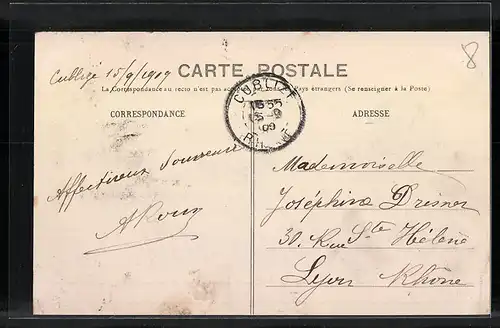 8
Cublize 15/9/1909
CARTE POSTALE
La Correspondance au recto n'est pas Pays étrangers (Se renseigner à la Poste)
CUBLIZE
CORRESPONDANCE
ADRESSE
Affectueux Souvenir
Mademoiselle
Joséphine
30, Rue Ste Hélène
Lyon Rhône